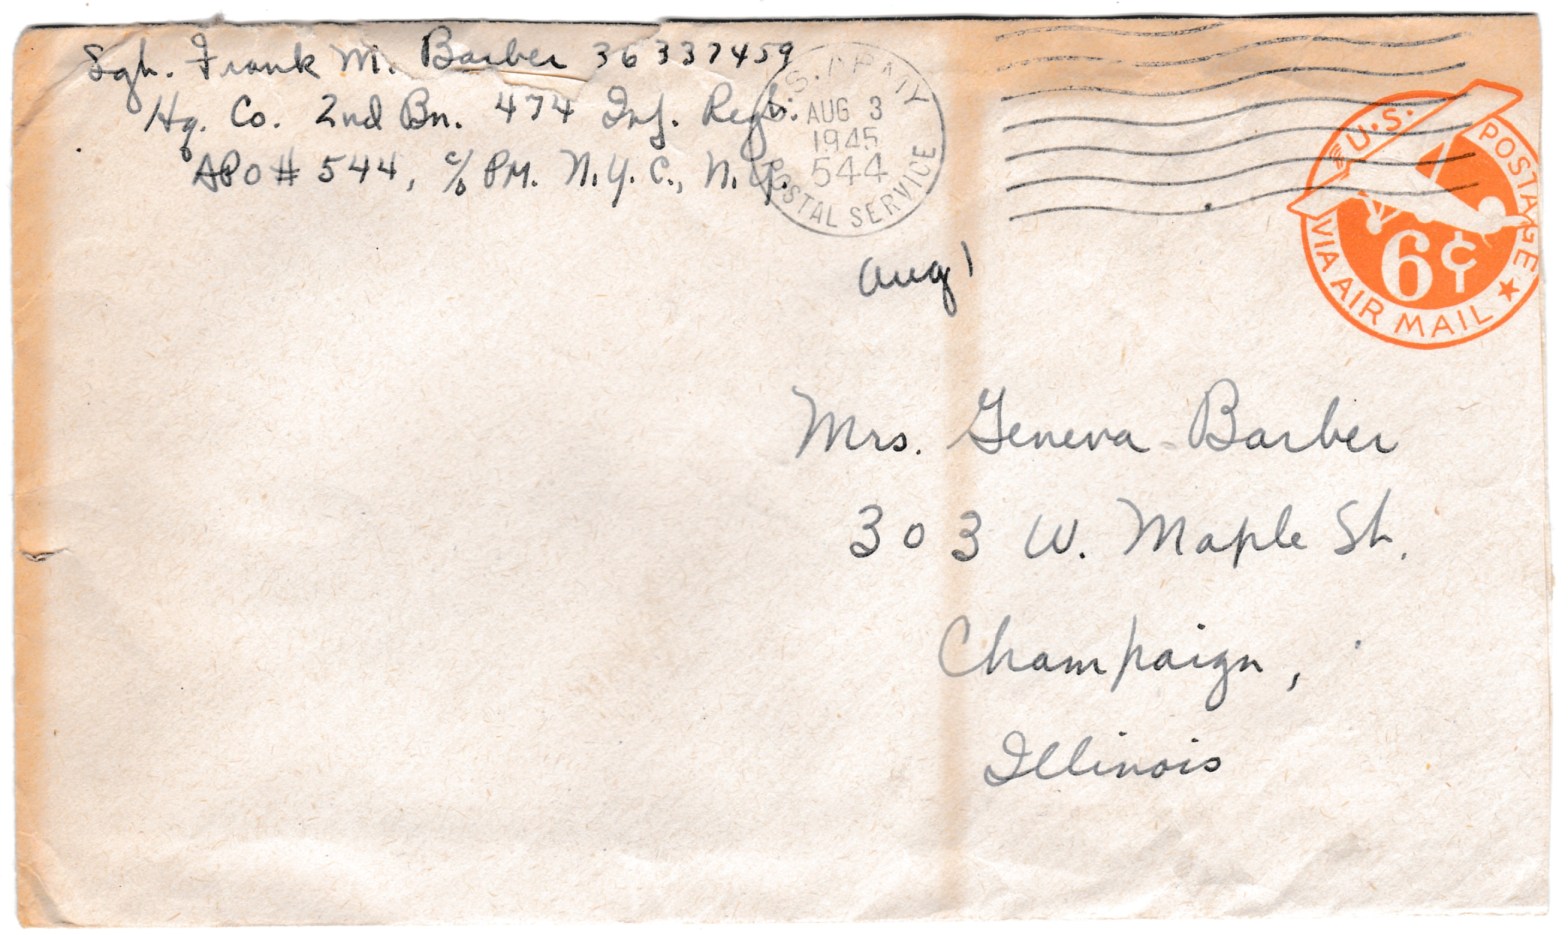 Sgt. Frank M. Barber 36337459
Hq. Co. 2nd Bn. 474 Inf. Regt.
APO # 544, c/o PM. N.Y.C., N.Y.
U.S. ARMY
AUG 3
1945
544
POSTAL SERVICE
U.S. POSTAGE
6¢
VIA AIR MAIL
Aug 1
Mrs. Geneva Barber
303 W. Maple St.
Champaign,
Illinois